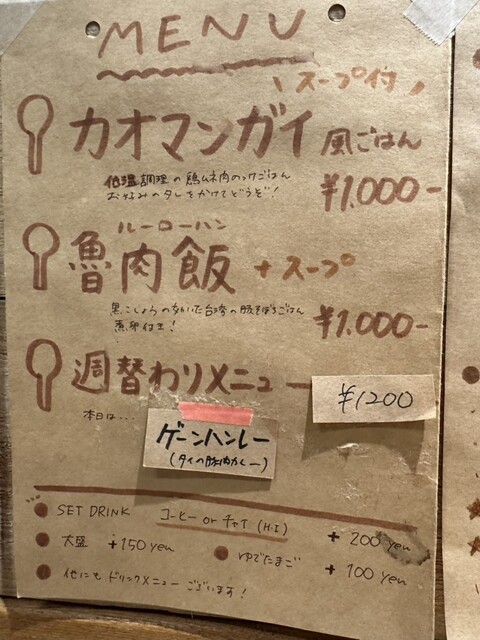 MENU
スープ付
カオマンガイ 風ごはん
低温調理の鶏ムネ肉のっけごはん
お好みのタレをかけてどうぞ! ¥1.000-
ルーローハン
魯肉飯 + スープ
黒こしょうのきいた台湾の豚そぼろごはん
煮卵付き! ¥1.000-
週替わりメニュー ¥1200
本日は...
ゲーンハンレー
(タイの豚肉カレー)
SET DRINK コーヒー or チャイ (H.I) + 200 yen
大盛 +150 yen ゆでたまご + 100 yen
他にもドリンクメニューございます!